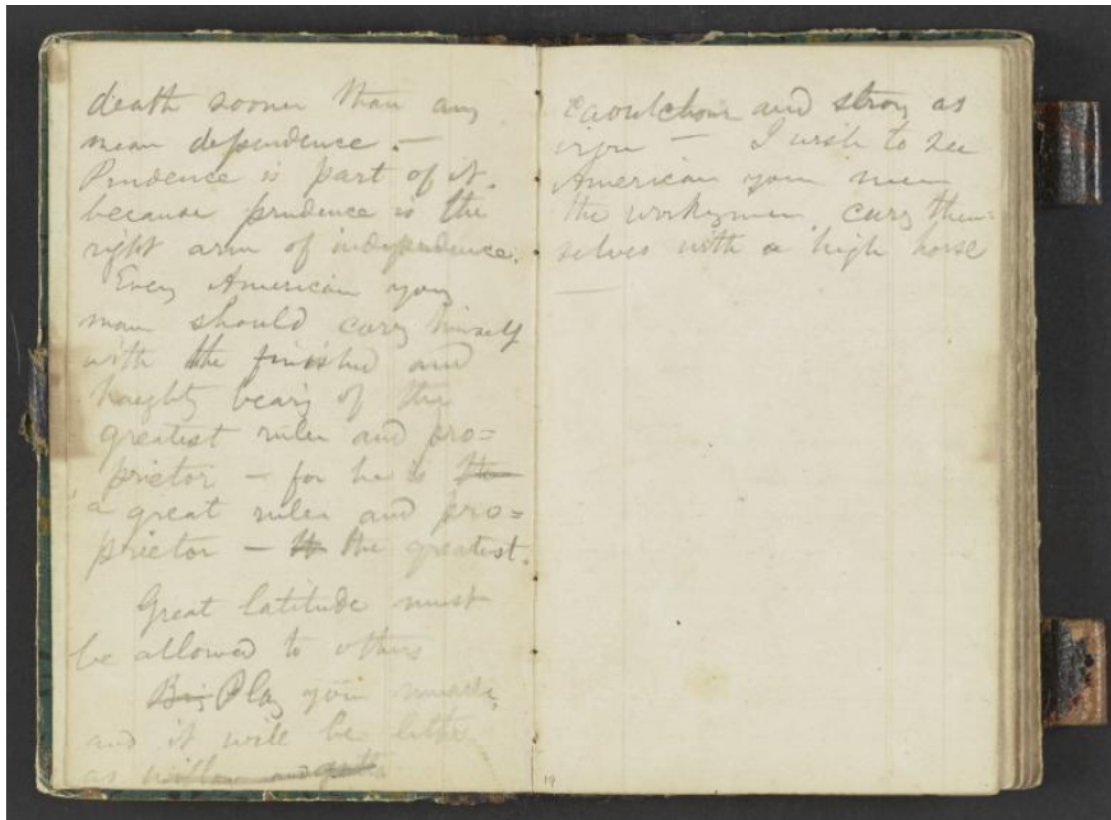 death sooner than any
mean dependence. —
Prudence is part of it,
because prudence is the
right arm of independence.
Every American young
man should carry himself
with the finished and
haughty bearing of the
greatest ruler and pro=
prietor — for he is the
a great ruler and pro=
prietor — the greatest.
Great latitude must
be allowed to others
Play your muscle,
and it will be lithe
as willow and gutta
caoutchouc and strong as
iron — I wish to see
American young men
the workingmen, carry them=
selves with a high horse
19